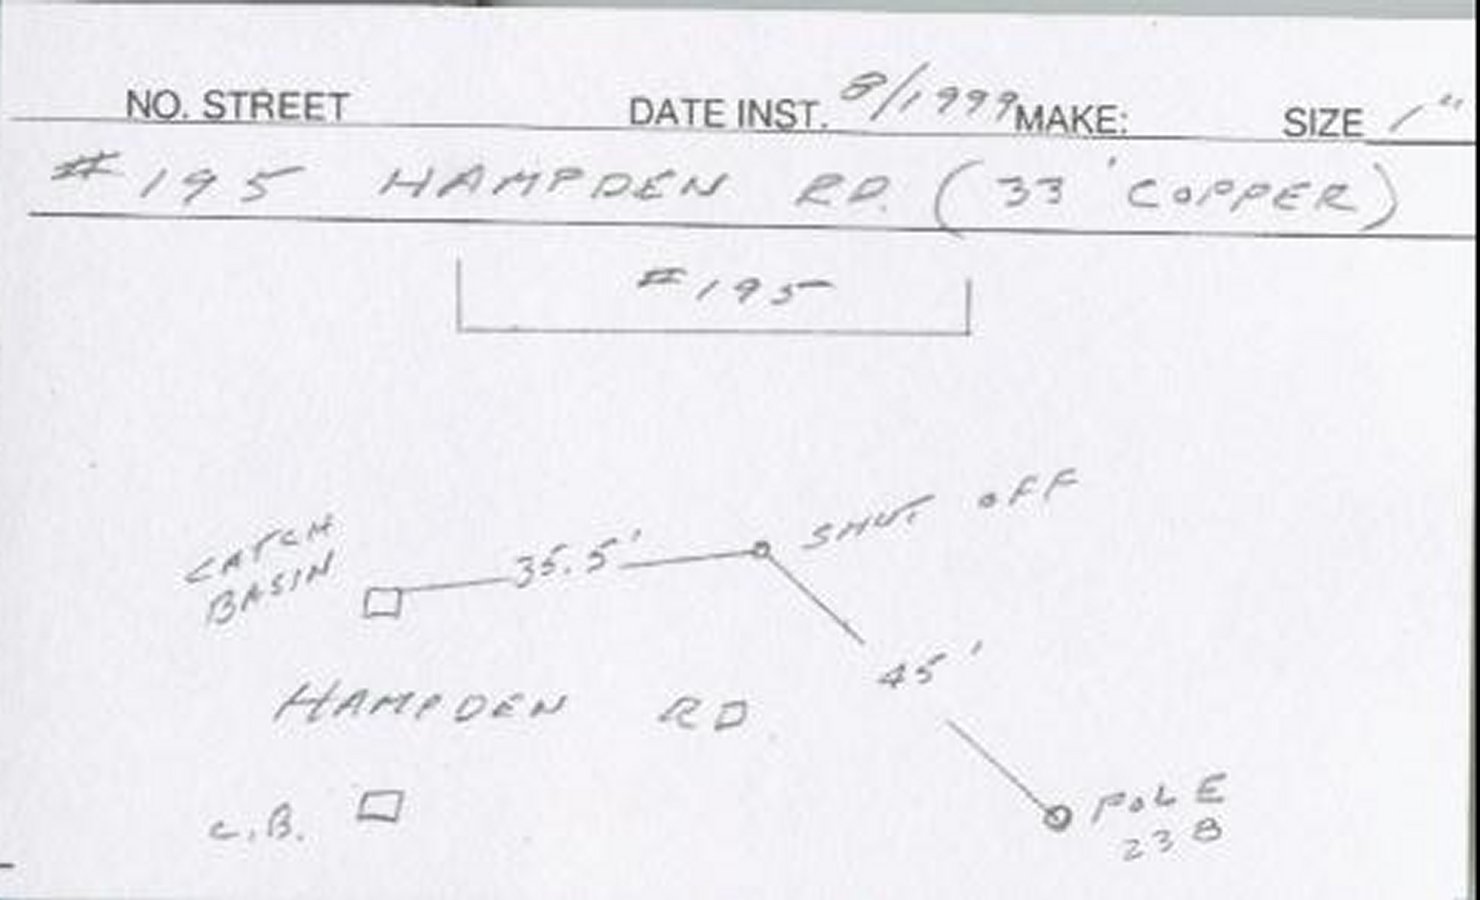 NO. STREET DATE INST. 8/1999 MAKE: SIZE 1"
# 195 HAMPDEN RD. (33' COPPER)
# 195
SHUT OFF
CATCH
BASIN
35.5'
45'
HAMPDEN RD
POLE
238
C.B.